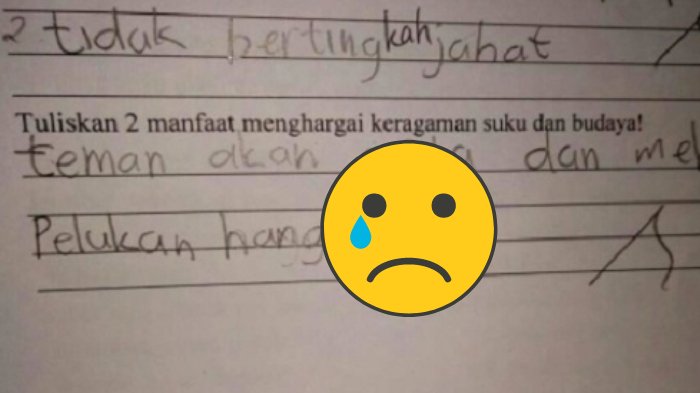 2 tidak bertingkah jahat
Tuliskan 2 manfaat menghargai keragaman suku dan budaya!
teman akan dan
Pelukan